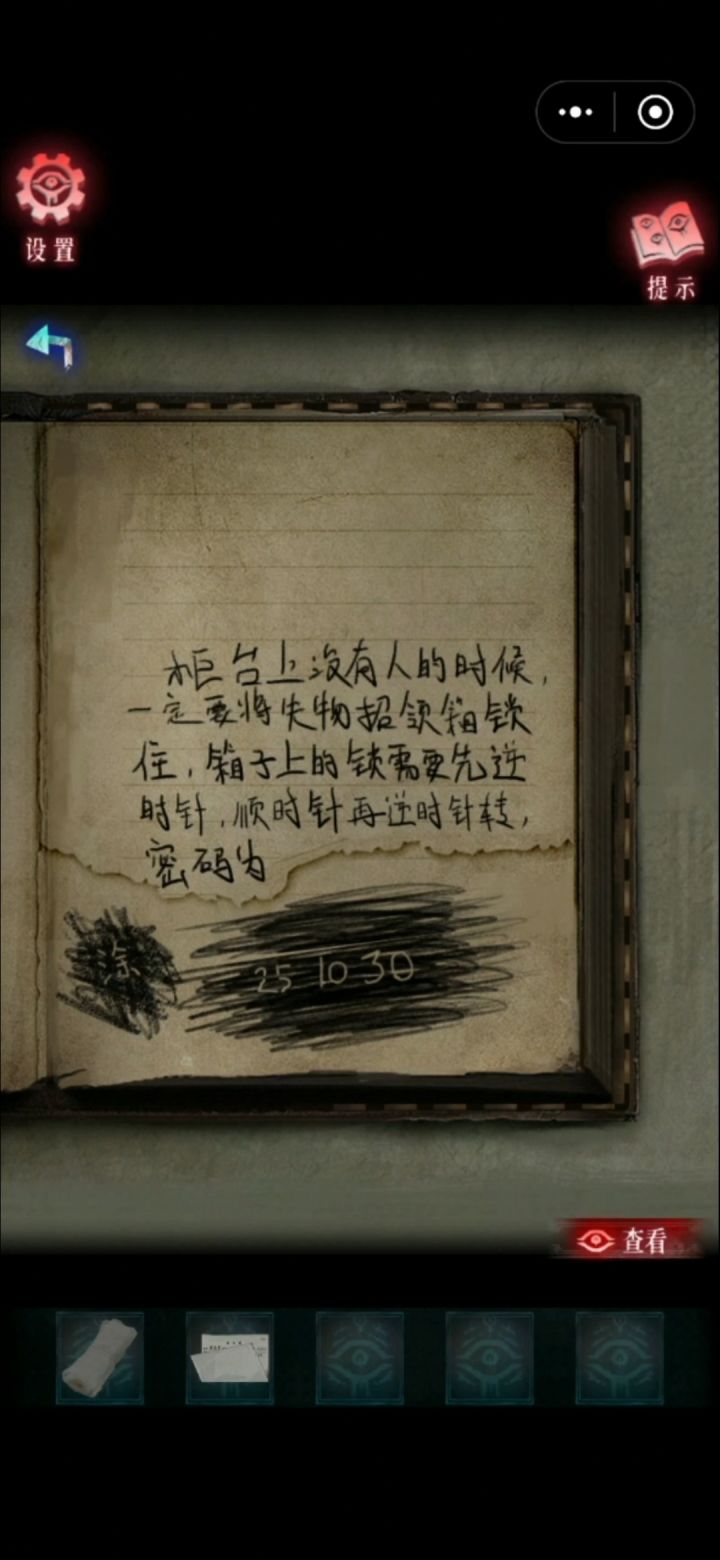 设置
提示
柜台上没有人的时候，
一定要将失物招领箱锁
住，箱子上的锁需要先逆
时针，顺时针再逆时针转，
密码为
涂 25 10 30
查看